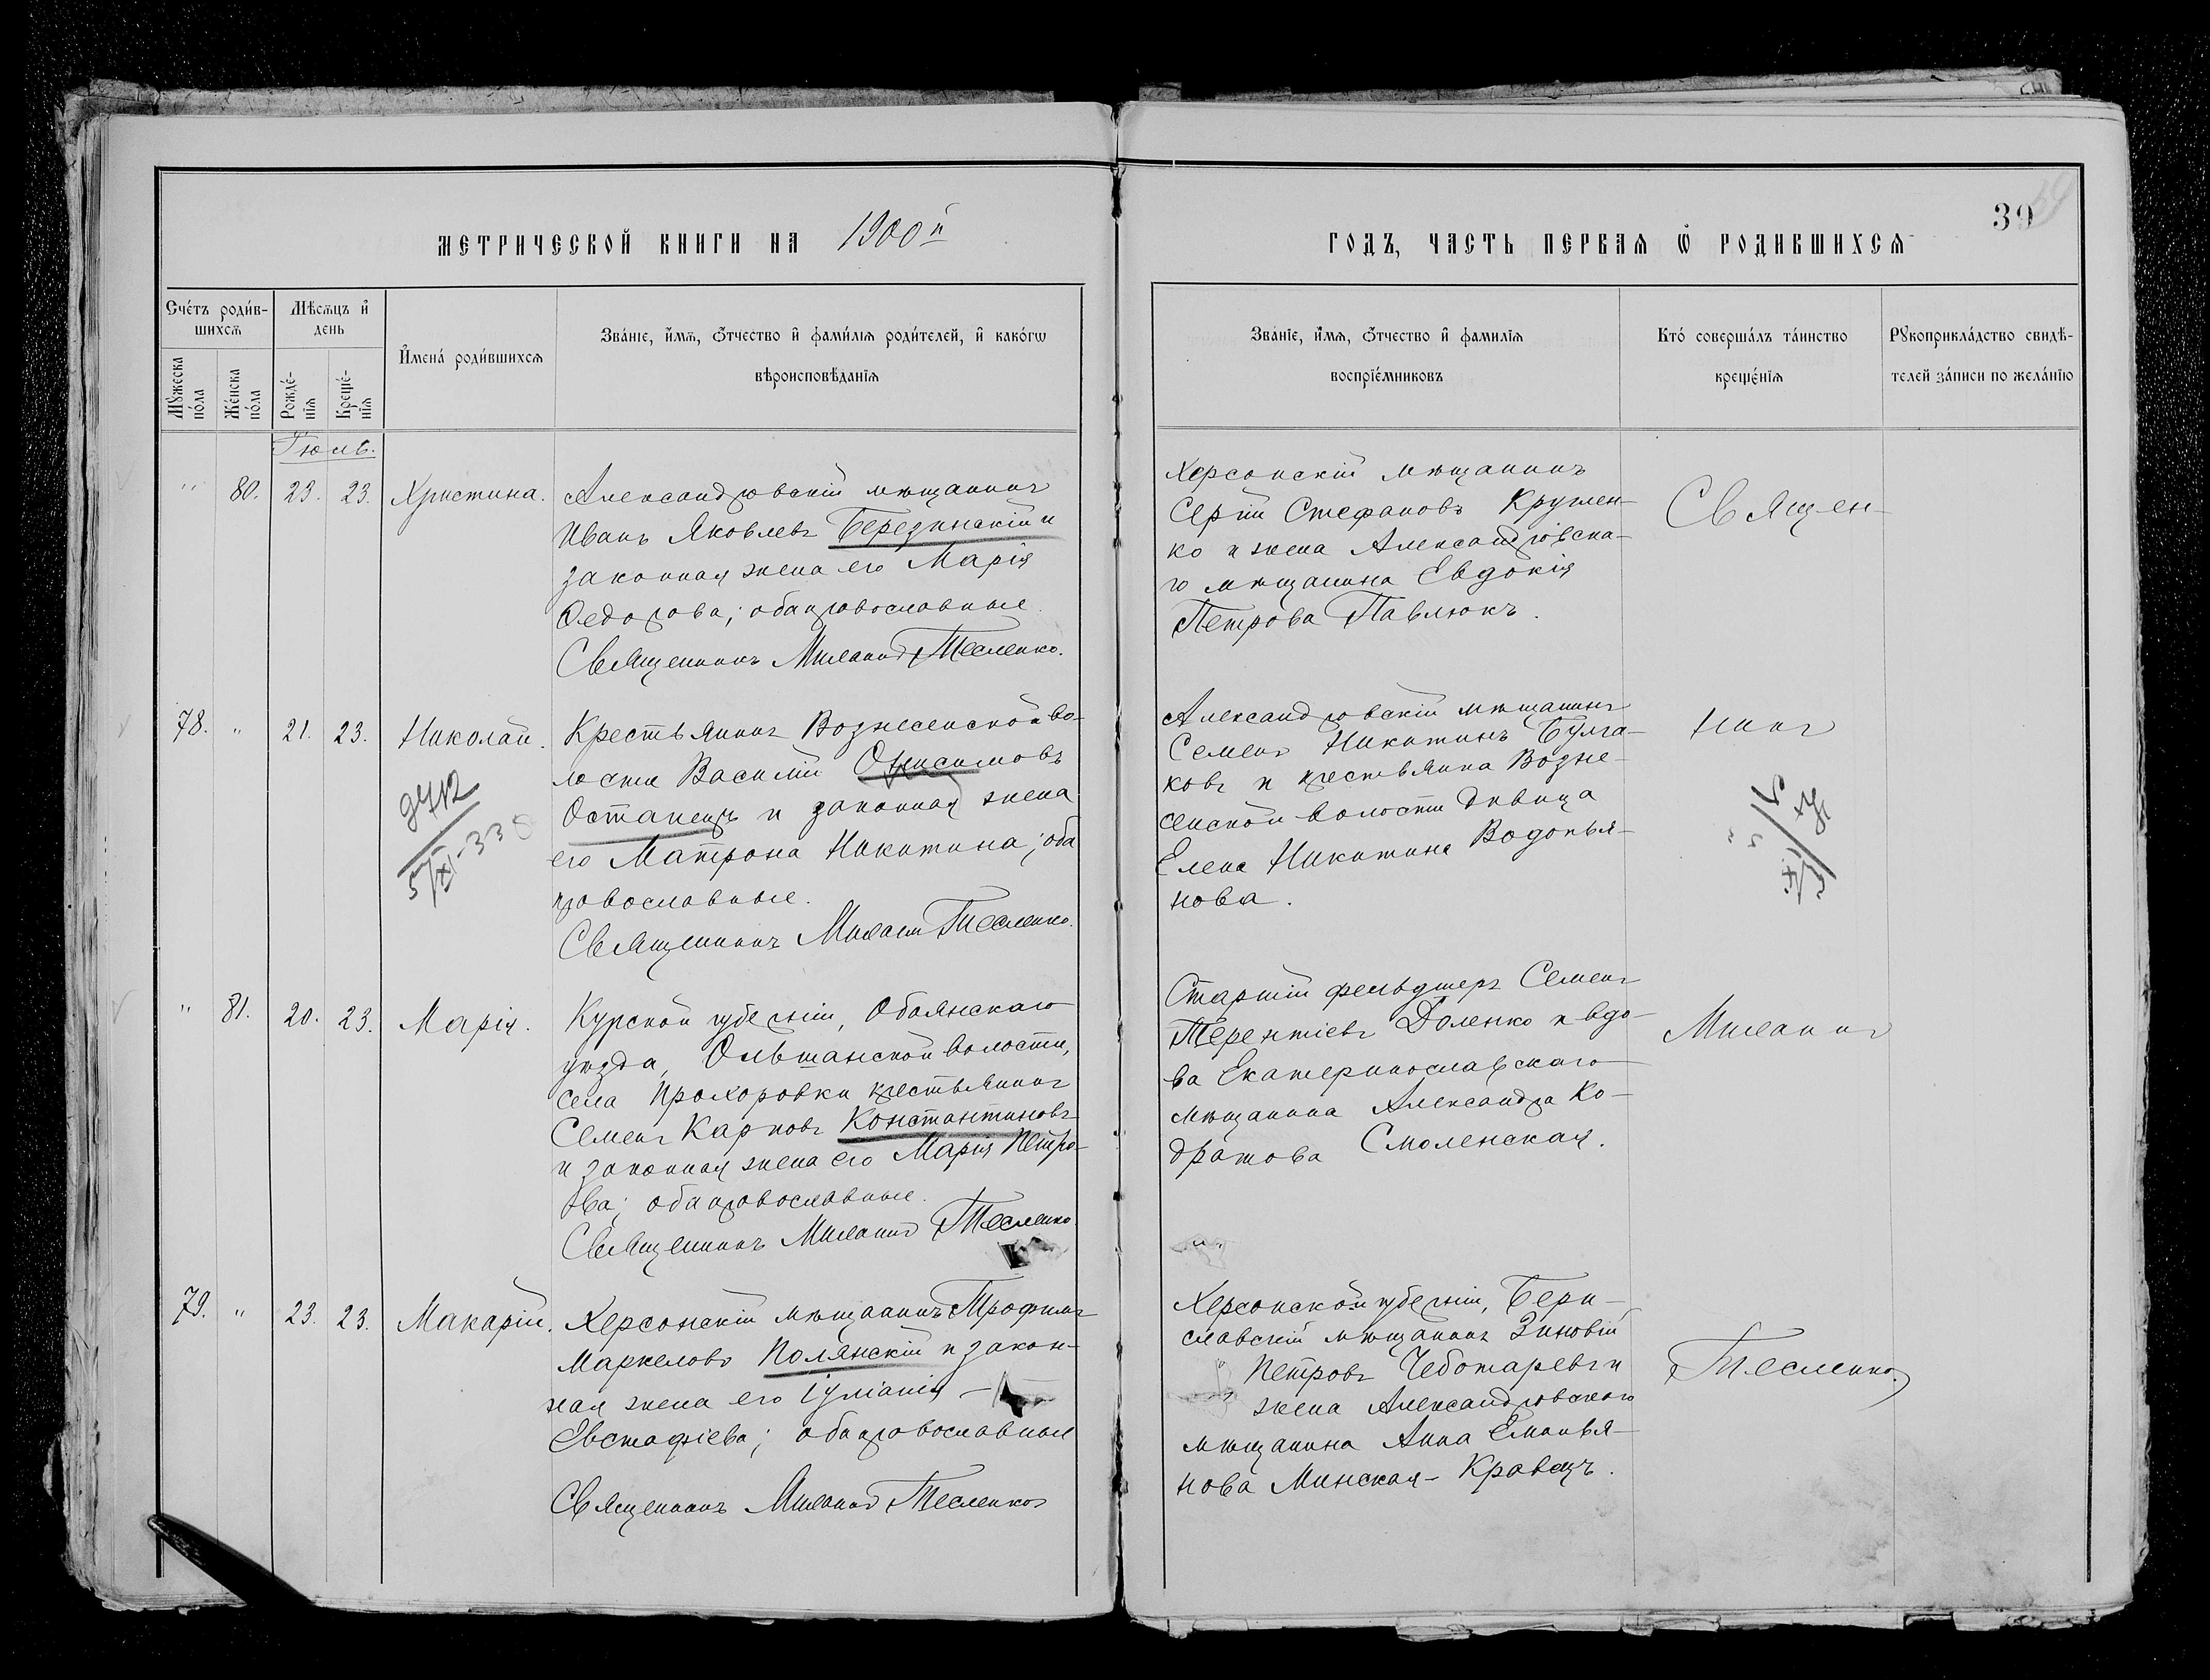 39
МЕТРИЧЕСКОЙ КНИГИ НА 1900й
ГОДЪ, ЧАСТЬ ПЕРВАЯ Ѿ РОДИВШИХСЯ
Сче́тъ роди́в-
шихсѧ
Мѣсѧцъ и҆
день
И҆мена́ роди́вшихсѧ
Зва́нїе, и҆́мѧ, ѻ҆́тчество и҆ фами́лїѧ роди́телей, и҆ како́гѡ
вѣроисповѣ́данїѧ
Мꙋ́жеска
по́ла
Же́нска
по́ла
Рожде́-
нїѧ
Креще́-
нїѧ
Зва́нїе, и҆́мѧ, ѻ҆́тчество и҆ фами́лїѧ
воспрїе́мниковъ
Кто́ соверша́лъ та́инство
креще́нїѧ
Рꙋкоприкла́дство свидѣ́-
телей за́писи по жела́нїю
Іюль.
" 80. 23. 23. Христина.
Александровскій мѣщанинъ
Иванъ Яковлевъ Березинскій и
законная жена его Марія
Ѳедорова; оба православные.
Священникъ Милаинъ Тесленко.
Херсонскій мѣщанинъ
Сергій Стефановъ Круглен-
ко и жена Александровска-
го мѣщанина Евдокія
Петрова Павлюкъ.
Священ-
78. " 21. 23. Николай.
Крестьянинъ Вознесенской во-
лости Василій Онисимовъ
Остапецъ и законная жена
его Матрона Никитина; оба
православные.
Священникъ Милаинъ Тесленко.
Александровскій мѣщанинъ
Семенъ Никитинъ Булга-
ковъ и крестьянка Возне-
сенской волости дѣвица
Елена Никитина Водопья-
нова.
никъ
" 81. 20. 23. Марія.
Курской губерніи, Обоянскаго
уѣзда, Ольшанской волости,
села Прохоровки крестьянинъ
Семенъ Карповъ Константиновъ
и законная жена его Марія Петро-
ва; оба православные.
Священникъ Милаинъ Тесленко
Старшій фельдшеръ Семенъ
Терентіевъ Доленко и вдо-
ва Екатеринославскаго
мѣщанина Александра Ко-
дратова Смоленская.
Милаинъ
79. " 23. 23. Макарій.
Херсонскій мѣщанинъ Трофимъ
Маркеловъ Полянскій и закон-
ная жена его Іуліанія
Евстафіева; оба православные
Священникъ Милаинъ Тесленко
Херсонской губерніи, Бери-
славскій мѣщанинъ Зиновій
Петровъ Чеботаревъ и
жена Александровского
мѣщанина Анна Емилья-
нова Минская-Кравецъ.
Тесленко.